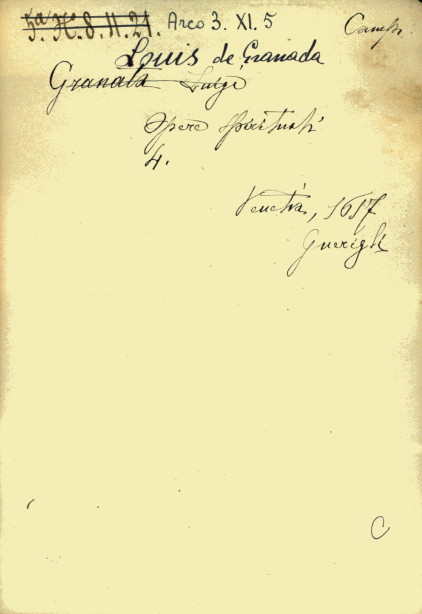 5ª H. 8. 11. 21. Arco 3. XI. 5
Louis de Granada
Granata Luigi
Opere spirituali
4.
Venetia, 1617
Guerigli
C